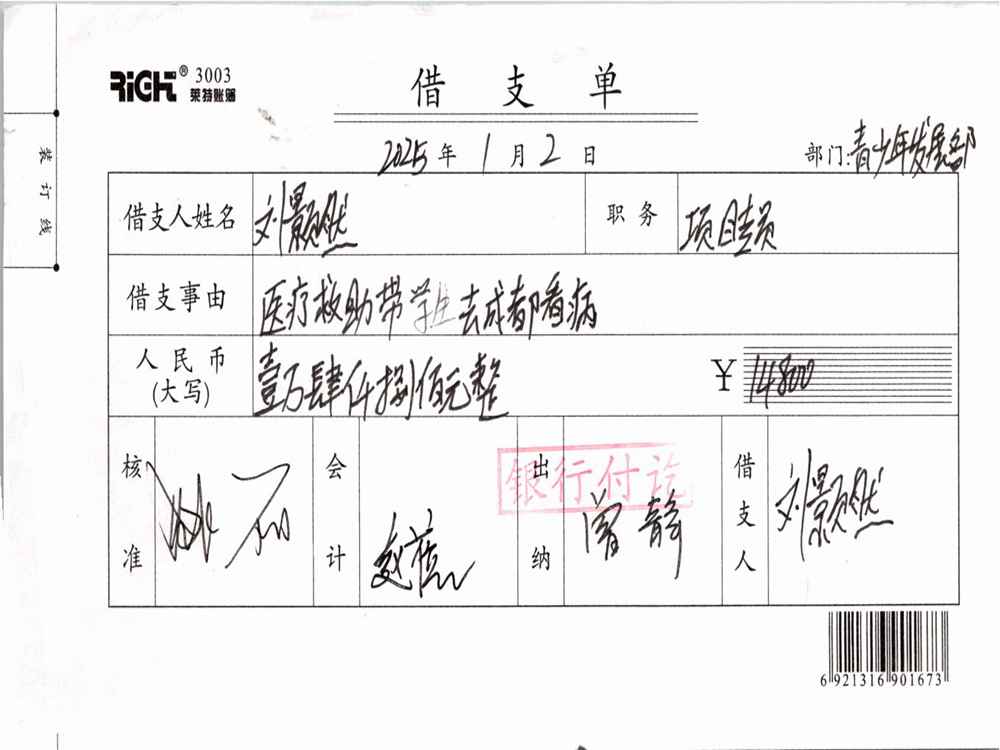 RiGHT® 3003
莱特账簿
借支单
2025年1月2日
部门:青少年发展部
装订线
借支人姓名 刘颢然 职务 项目专员
借支事由 医疗救助带学生去成都看病
人民币(大写) 壹万肆仟捌佰元整 ¥14800
核准 会计 赵 出纳 曾静 借支人 刘颢然
银行付讫
6 921316 901673